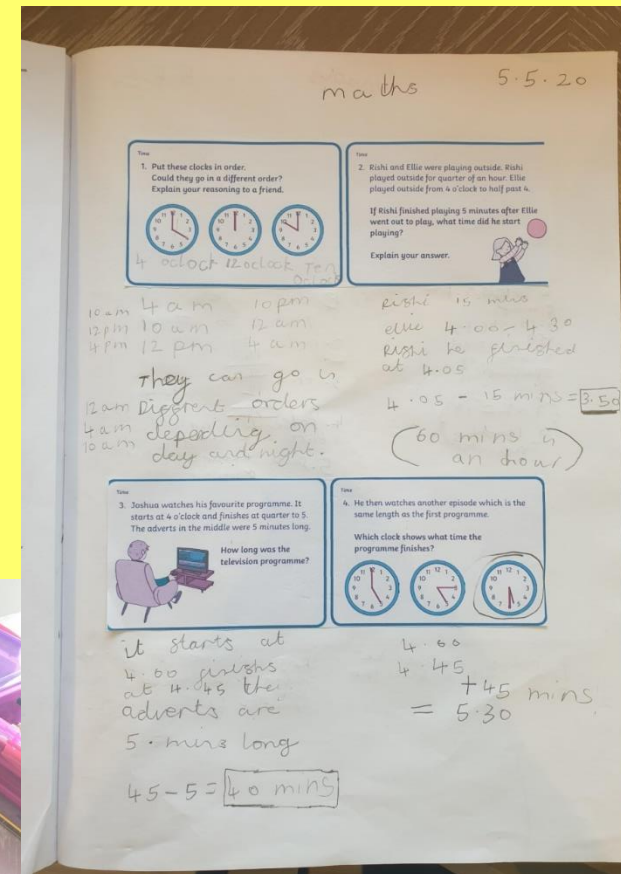 maths
5.5.20
Time
1. Put these clocks in order.
Could they go in a different order?
Explain your reasoning to a friend.
4 oclock 12 oclock Ten
Oclock
Time
2. Rishi and Ellie were playing outside. Rishi
played outside for quarter of an hour. Ellie
played outside from 4 o'clock to half past 4.
If Rishi finished playing 5 minutes after Ellie
went out to play, what time did he start
playing?
Explain your answer.
10 am 4 am 10 pm
12 pm 10 am 12 am
4 pm 12 pm 4 am
They can go in
12 am Diggrent orders
4 am depending on
10 am day and night.
Rishi 15 mins
ellie 4.00 - 4.30
Rishi he finished
at 4.05
4.05 - 15 mins = 3.50
(60 mins in
an hour)
Time
3. Joshua watches his favourite programme. It
starts at 4 o'clock and finishes at quarter to 5.
The adverts in the middle were 5 minutes long.
How long was the
television programme?
Time
4. He then watches another episode which is the
same length as the first programme.
Which clock shows what time the
programme finishes?
it starts at
4.00 finishs
at 4.45 the
adverts are
5. mins long
45-5 = 40 mins
4.00
4.45
+45 mins
= 5.30